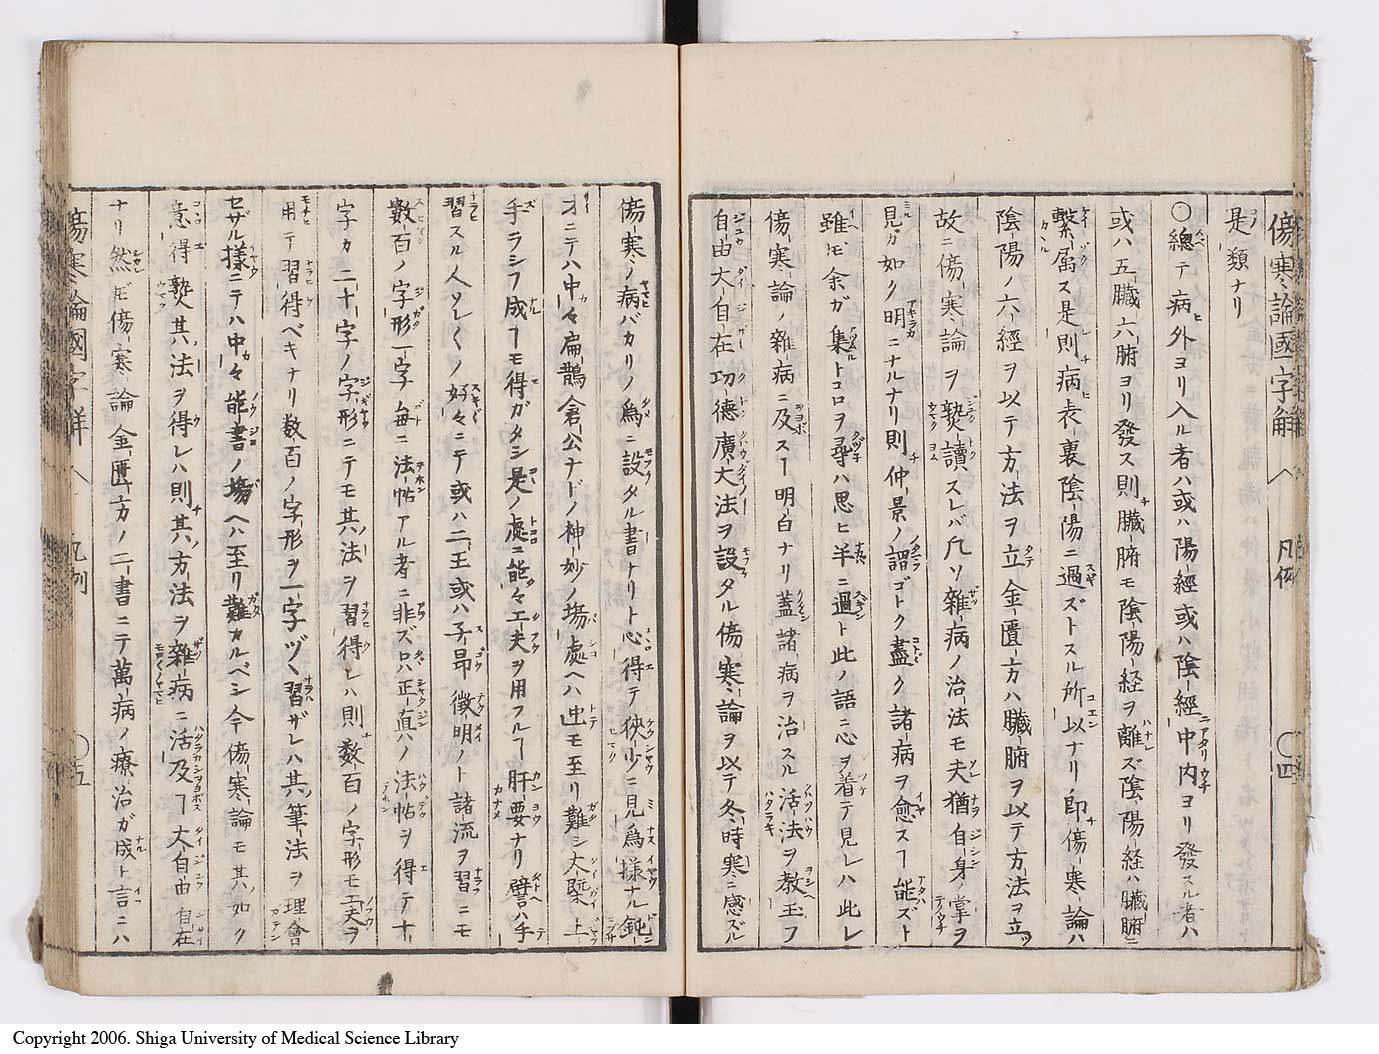 傷寒論國字解 凡例 〇四
是ノ類ナリ
〇總テ病ヒ外ヨリ入ル者ハ或ハ陽經或ハ陰經ニ中リ内ヨリ發スル者ハ
或ハ五臟六腑ヨリ發ス則臟腑モ陰陽ノ経ヲ離レズ陰陽ノ経ハ臟腑ニ
繫属ス是則病ヒ表裏陰陽ニ過ズトスル所以ナリ即傷寒論ハ
陰陽ノ六經ヲ以テ方法ヲ立金匱方ハ臟腑ヲ以テ方法ヲ立ツ
故ニ傷寒論ヲ熟讀スレバ凡ソ雜病ノ治法モ夫レ猶自身ノ掌ヲ
見ルガ如ク明ニナルナリ則仲景ノ謂ゴトク盡ク諸病ヲ愈スヿ能ズト
雖ドモ余ガ集ルトコロヲ尋ハ思ヒ半ニ過ント此ノ語ニ心ヲ着テ見レハ此レ
傷寒論ノ雜病ニ及スヿ明白ナリ蓋諸病ヲ治スル活法ヲ教玉フ
自由大自在功德廣大ノ法ヲ設タル傷寒論ヲ以テ冬時寒ニ感ズル
傷寒ノ病バカリノ為ニ設タル書ナリト心得テ狹少ニ見為様ナル鈍
才ニテハ中々扁鵲倉公ナドノ神妙ノ塲處ヘハ迚モ至リ難シ大槩上
手ラシフ成ヿモ得ガタシ是ノ處ニ能々工夫ヲ用フルヿ肝要ナリ譬ハ手
習スル人ソレ〱ノ好々ニテ或ハ二王或ハ子昂徴明ノト諸流ヲ習ニモ
數百ノ字形一字毎ニ法帖アル者ニ非ズ只正直ノ法帖ヲ得テ十
字カ二十字ノ字形ニテモ其ノ法ヲ習得レハ則数百ノ字形モ工夫ヲ
用テ習得ベキナリ数百ノ字形ヲ一字ヅヽ習ザレハ其ノ筆法ヲ理會
セザル様ニテハ中々能書ノ塲ヘハ至リ難カルベシ今傷寒論モ其ノ如ク
意得熟其ノ法ヲ得レハ則其ノ方法ヲ雜病ニ活及ヿ大自由自在
ナリ然ドモ傷寒論金匱方ノ二書ニテ萬病ノ療治ガ成ト言ニハ
傷寒論國字解 凡例 〇五
Copyright 2006. Shiga University of Medical Science Library